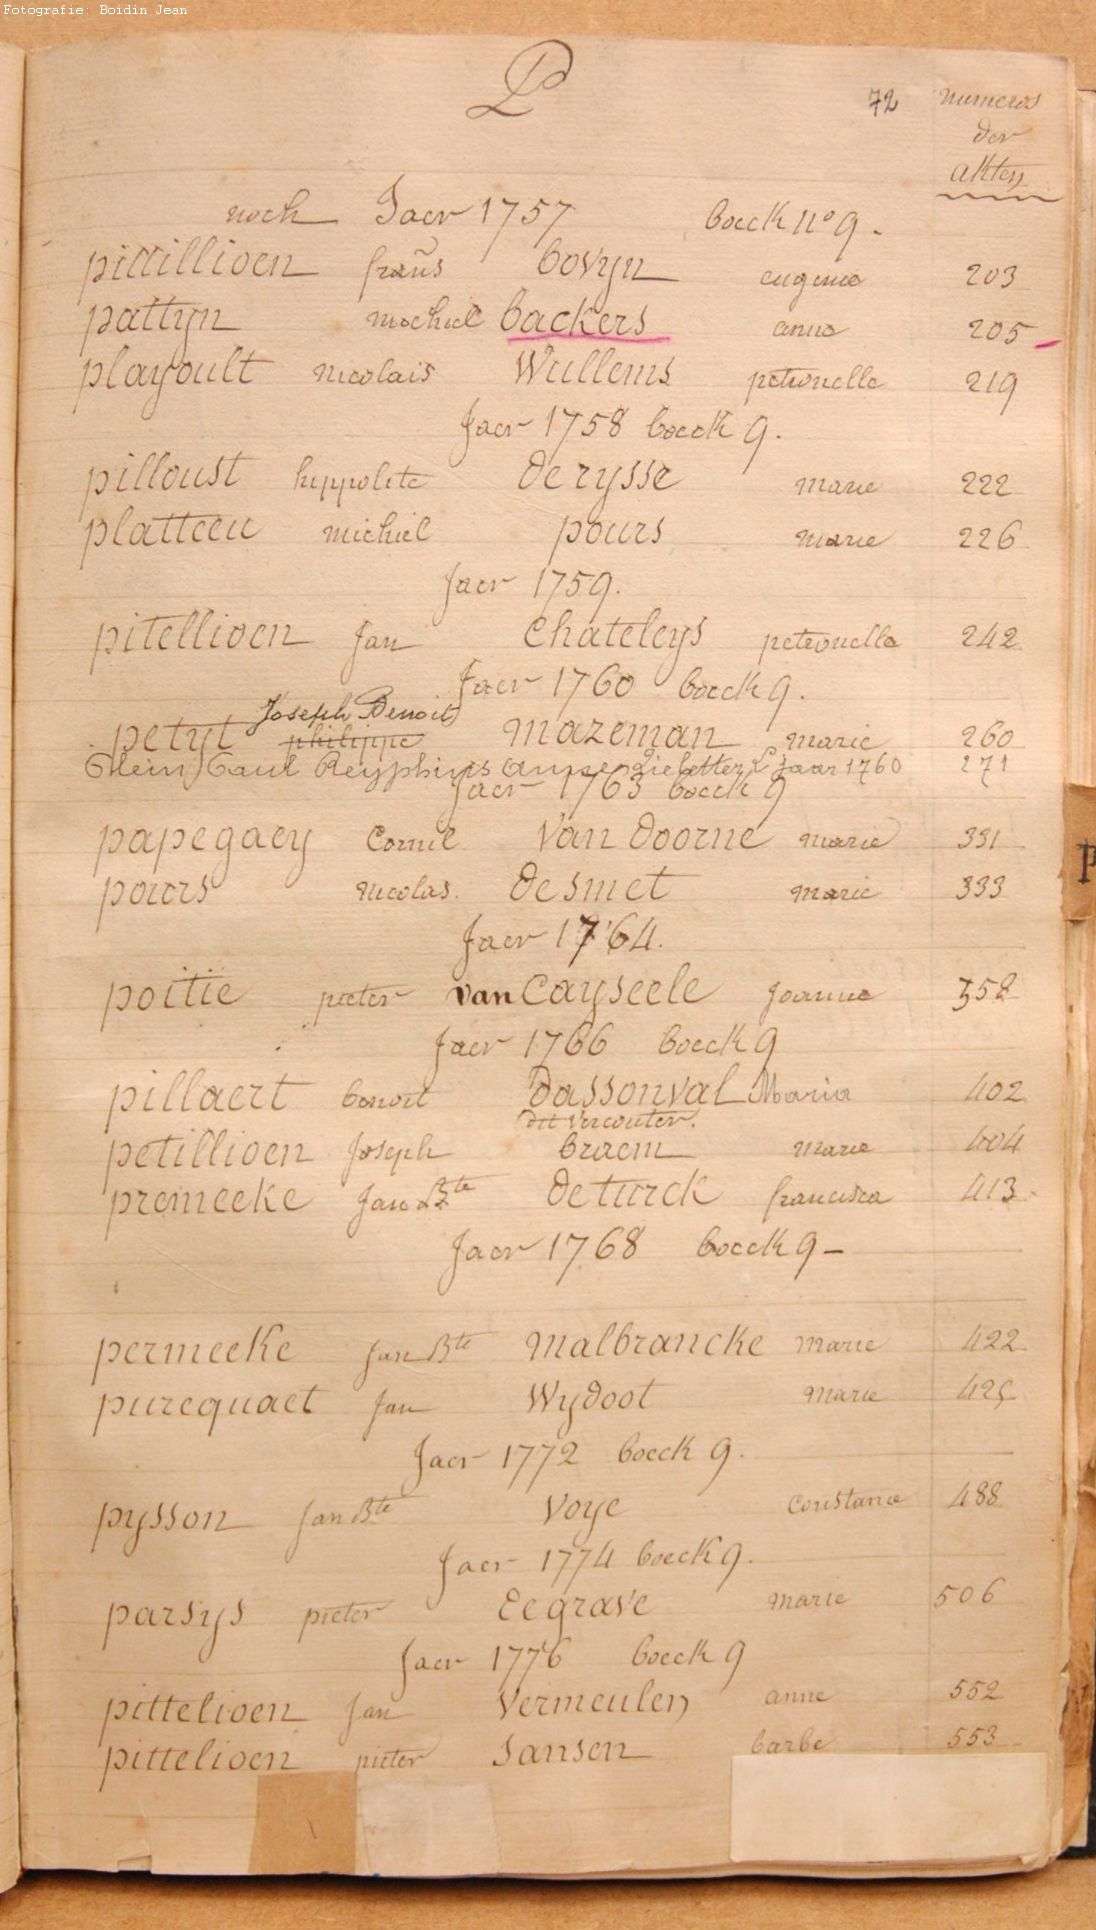 Fotografie: Boidin Jean
P
72 numeros
der
akten
noch Jaer 1757 boeck n° 9.
pittillioen frans bovyn eugenie 203
pattyn mechiel backers anna 205
playoult nicolais Wullems petronelle 219
Jaer 1758 boeck 9.
pilloust hippolite de rysse marie 222
platteeu michiel pours marie 226
Jaer 1759.
pitellioen Jan Chateleys petronella 242
Jaer 1760 boeck 9.
Joseph Benoit
petyt philippe mazeman marie 260
Paul Reyphins anne Jaar 1760 271
Jaer 1763 boeck 9
papegaey Cornil Van doorne marie 331
pours nicolas. desmet marie 333
Jaer 1764.
poitie pieter van Cayseele Joanna 358
Jaer 1766 boeck 9
pillaert benoit dassonval Maria 402
dit Vercouter.
petillioen Joseph braem marie 404
premeeke Jan Bte deturck francisca 413
Jaer 1768 boeck 9 –
permeeke Jan Bte malbrancke marie 422
purequaet Jan Wydoot marie 425
Jaer 1772 boeck 9.
pysson Jan Bte Voye Constance 488
Jaer 1774 boeck 9.
parsys pieter Eegrave marie 506
Jaer 1776 boeck 9
pittelioen Jan Vermeulen anne 552
pittelioen pieter Jansen barbe 553